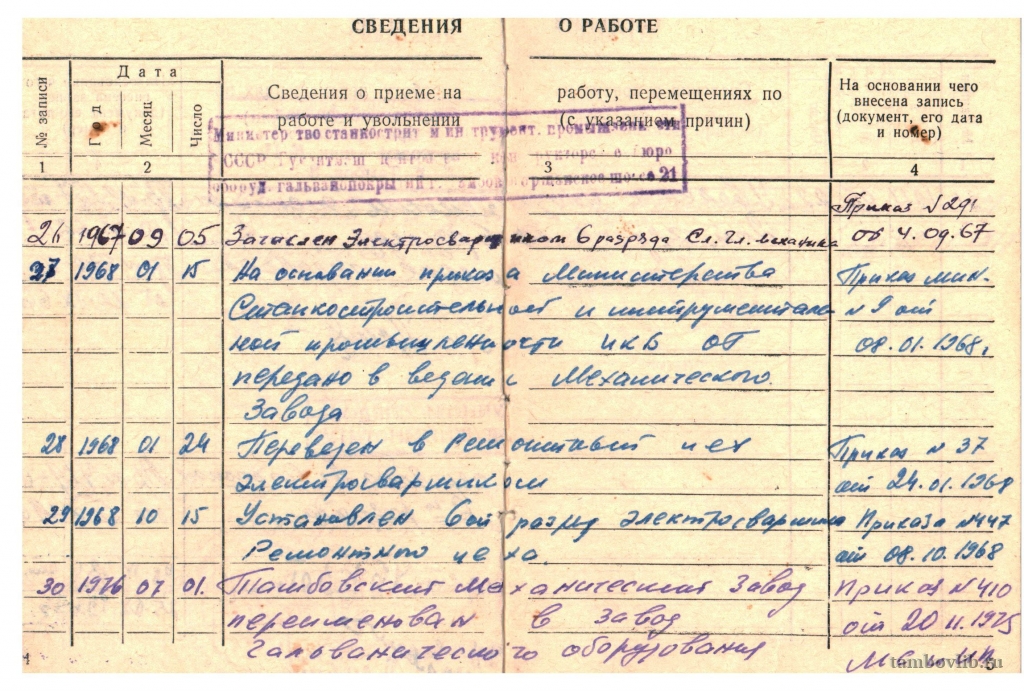 СВЕДЕНИЯ О РАБОТЕ
№ записи
Дата
Год
Месяц
Число
Сведения о приеме на работу, перемещениях по
работе и увольнении (с указанием причин)
На основании чего
внесена запись
(документ, его дата
и номер)
1 2 3 4
СССР
оборуд. гальванопокрытий г. шоссе 21
Приказ №291
26 1967 09 05 Зачислен Электросварщиком 6 разряда Сл. Гл. механика от 4.09.67
27 1968 01 15 На основании приказа Министерства Приказ мин.
Станкостроительной и инструментала №9 от
ной промышленности ЦКБ ОГ 08.01.1968г
передано в ведение Механического
Завода
28 1968 01 24 Переведен в Ремонтный цех Приказ № 37
электросварщиком от 24.01.1968
29 1968 10 15 Установлен 6ой разряд электросварщика Приказа №447
Ремонтного цеха. от 08.10.1968
30 1976 07 01. Тамбовский Механический Завод Приказ №410
переименован в Завод от 20 11.1975
Гальванического оборудования
tambovlib.ru